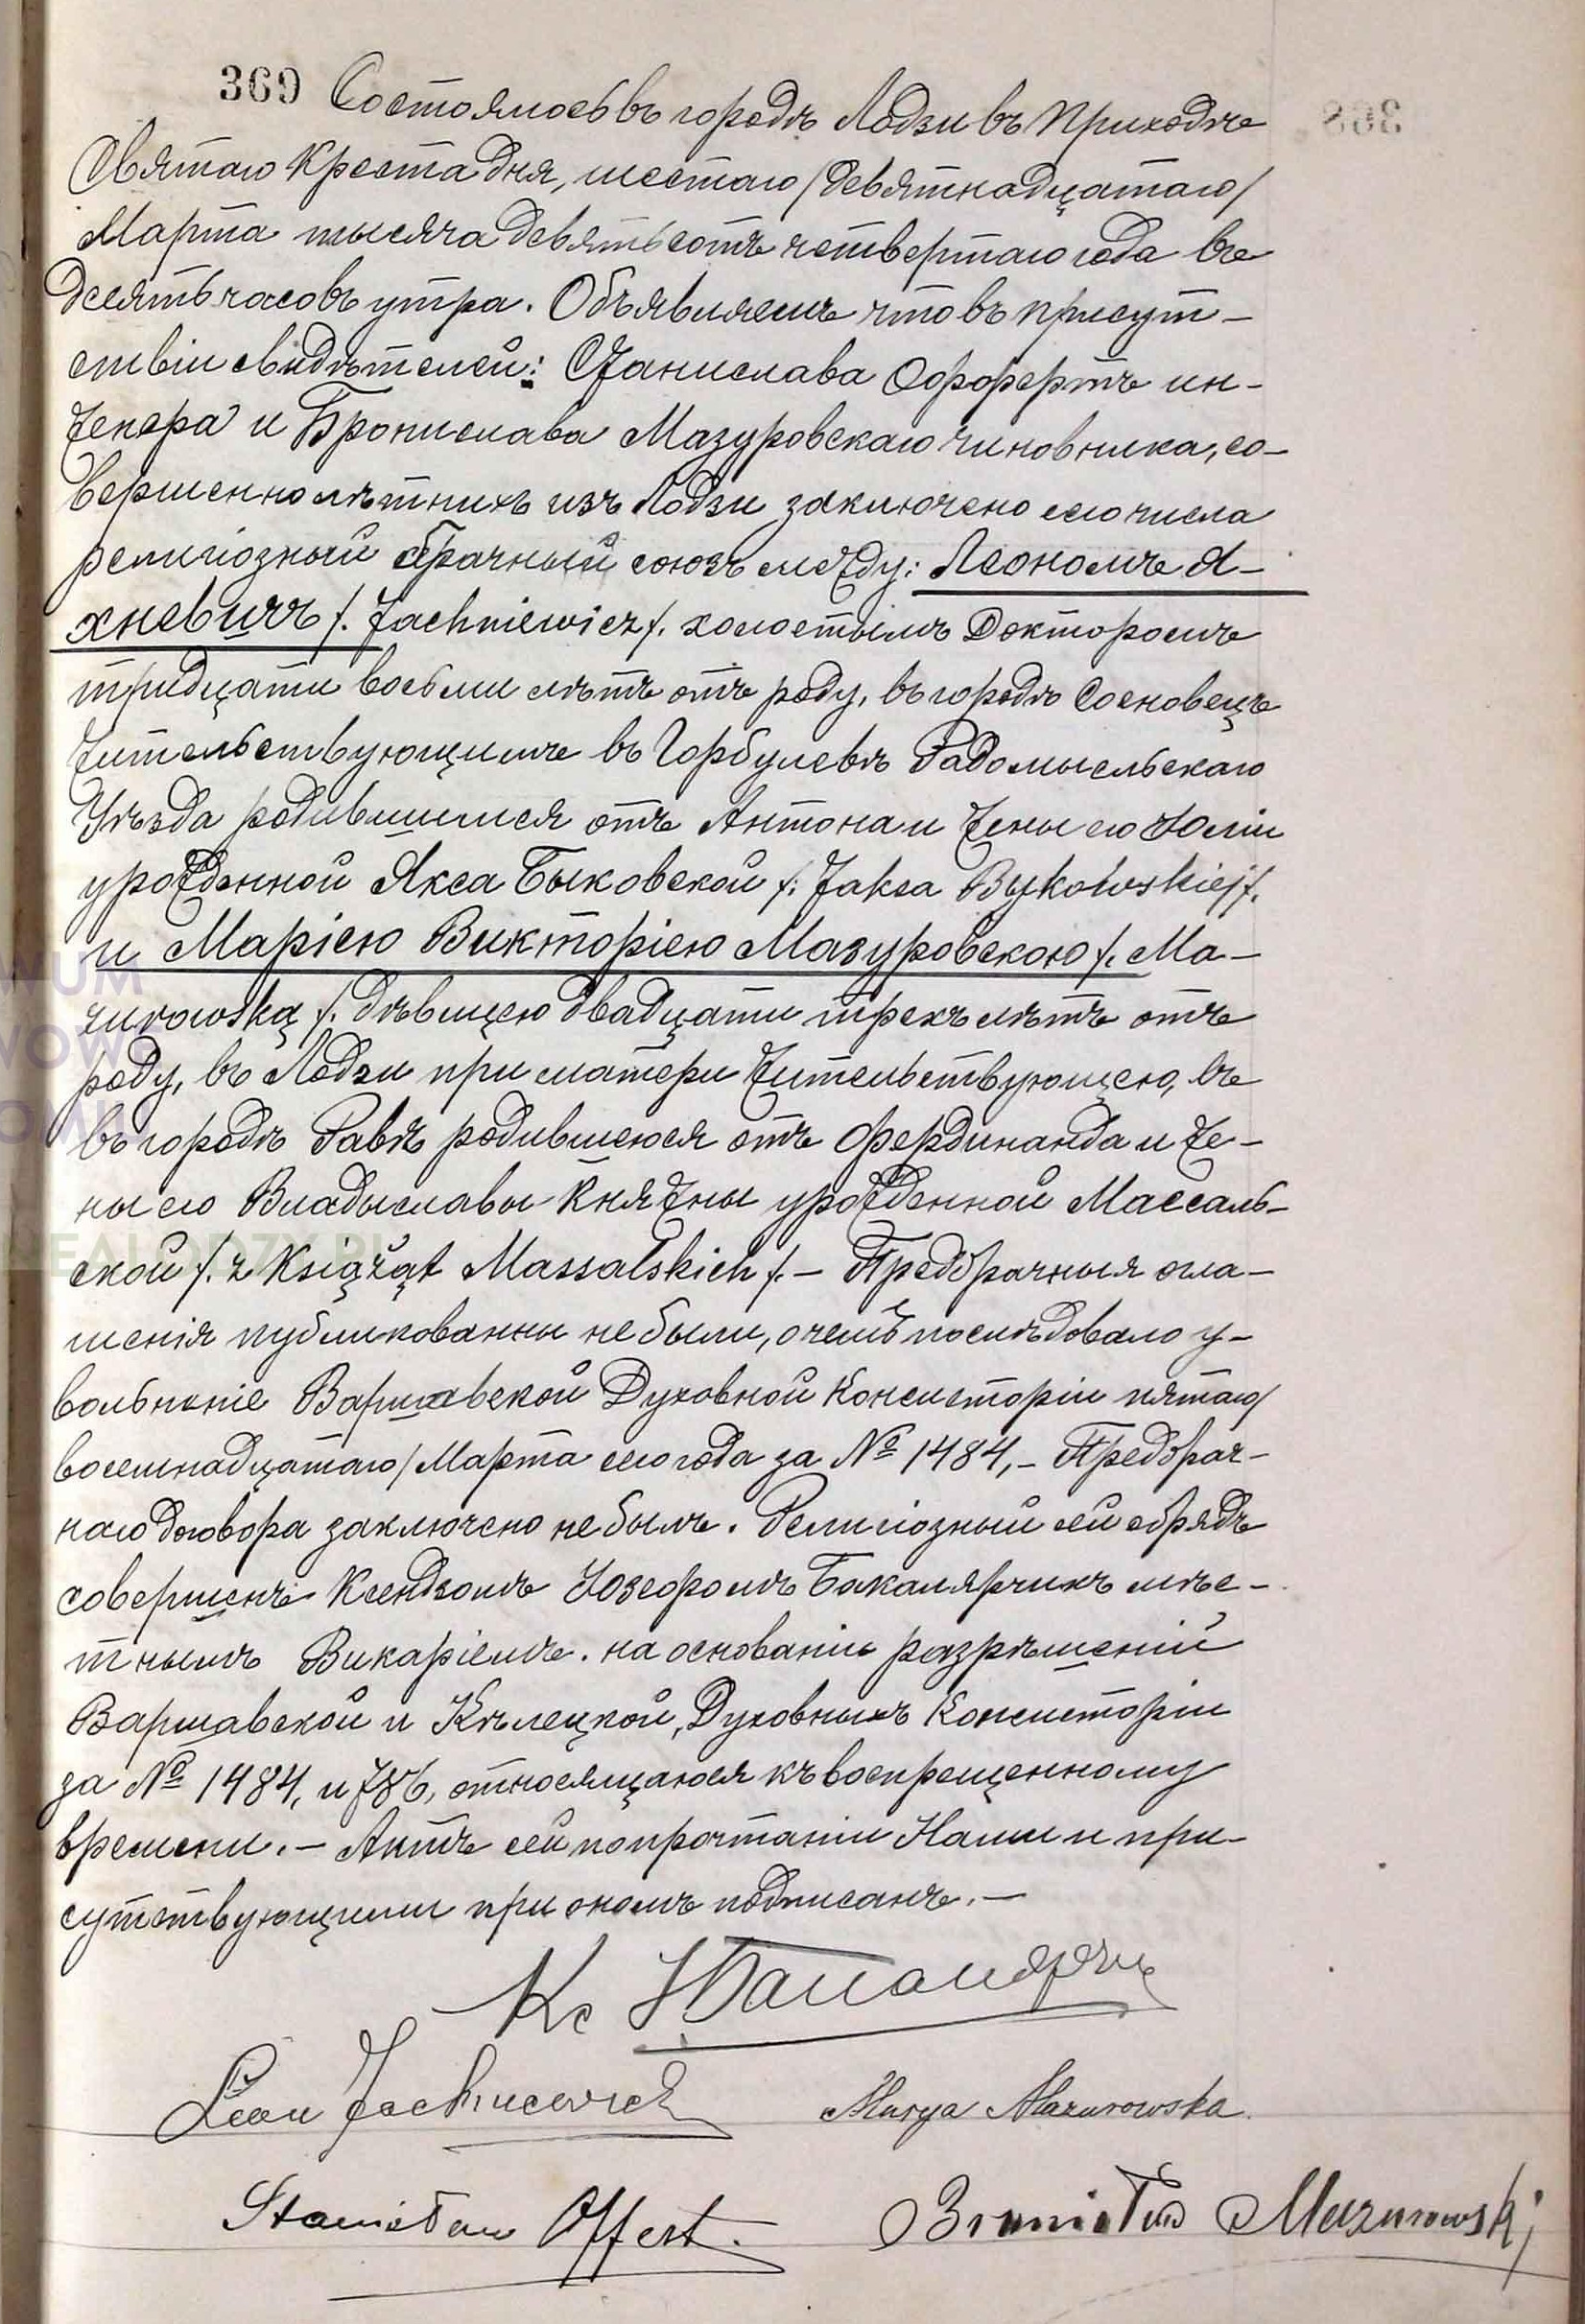 369 Состоялось въ городѣ Лодзи въ приходѣ
Святаго Креста дня, шестаго /девятнадцатаго/
Марта тысяча девятьсотъ четвертаго года въ
десять часовъ утра. Объявляемъ что въ присут-
ствіи свидѣтелей: Станислава Оффертъ ин-
женера и Бронислава Мазуровскаго чиновника, со-
вершеннолѣтнихъ изъ Лодзи заключено сего числа
религіозный брачный союзъ между: Леономъ Я-
хневичъ /. Jachniewicz /. холостымъ Докторомъ
тридцати восьми лѣтъ отъ роду, въ городѣ Сосновецъ
жительствующимъ въ Горбулевѣ Радомысльскаго
Уѣзда родившимся отъ Антона и жены его Юліи
урожденной Якса Быковской /: Jaksa Bykowskiej /.
и Маріею Викторіею Мазуровскою /. Ma-
zurowską /. дѣвицею двадцати трехъ лѣтъ отъ
роду, въ Лодзи при матери жительствующею, въ
въ городѣ Равѣ родившеюся отъ Фердинанда и же-
ны его Владыславы Княжны урожденной Массаль-
ской /. z Książąt Massalskich /. – Предбрачныя огла-
шенія публикованны не были, о чемъ послѣдовало у-
вольненіе Варшавской Духовной Консисторіи пятаго/
восемнадцатаго/ Марта сего года за № 1484, – Предбрач-
наго договора заключено не былъ. Религіозный сей обрядъ
совершенъ Ксендзомъ Юзефомъ Бакалярчикъ мѣс-
тнымъ Викаріемъ. на основаніи разрѣшеній
Варшавской и Кѣлецкой, Духовныхъ Консисторіи
за № 1484, и 786, относящагося къ воспрещенному
времени. – Актъ сей по прочтаніи Нами и при-
сутствующими при ономъ подписанъ. –
Кс
Leon Jachniewicz Marya Mazurowska
Stanisław Offert. Bronisław Mazurowski